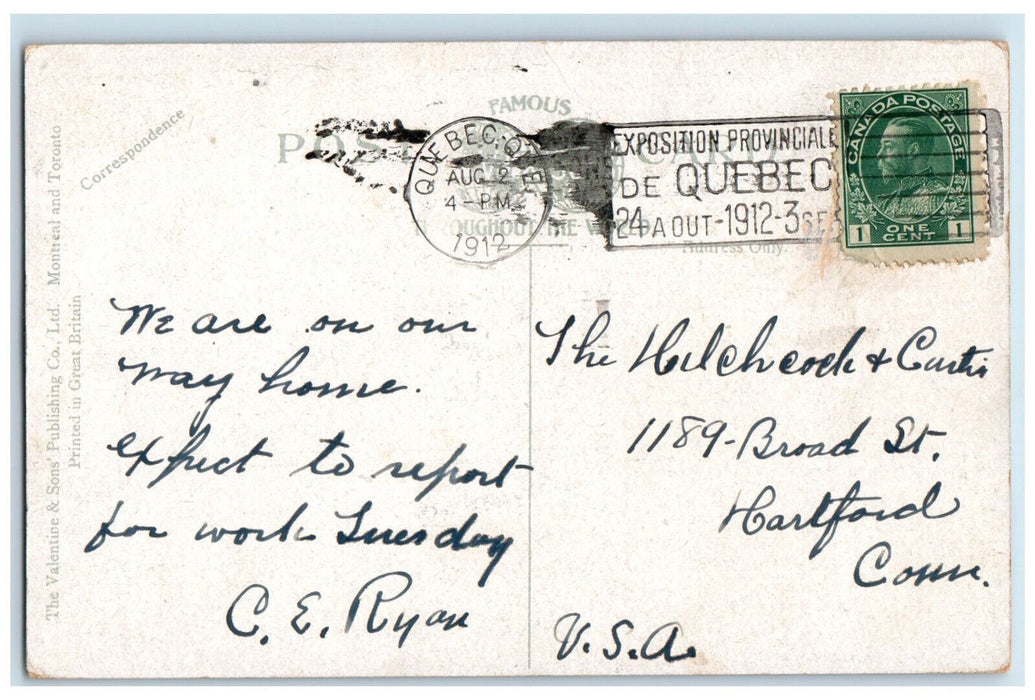 The Valentine & Sons' Publishing Co., Ltd. Montreal and Toronto
Printed in Great Britain
Correspondence
FAMOUS
POST CARD
THROUGHOUT THE WORLD
Address Only.
QUEBEC, QUE.
AUG 2
4 - PM
1912
EXPOSITION PROVINCIALE
DE QUEBEC
24 AOUT - 1912 - 3 SE
CANADA POSTAGE
1 ONE CENT 1
We are on our
way home.
Expect to report
for work Tuesday
C. E. Ryan
The Hitchcock & Curtis
1189 - Broad St.
Hartford
Conn.
U.S.A.